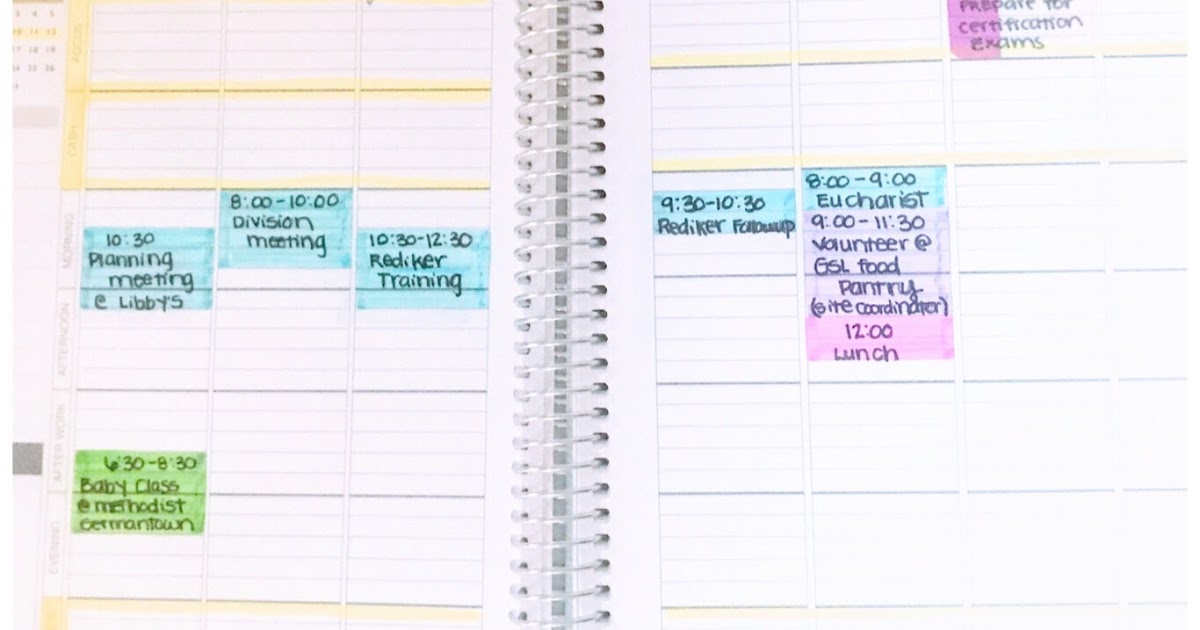 3 4 5
10 11 12
17 18 19
24 25 26
FOCUS
CASH
MORNING
AFTERNOON
AFTER WORK
EVENING
10:30
Planning
meeting
@ Libby's
6:30-8:30
Baby Class
@ methodist
Germantown
8:00-10:00
Division
meeting
10:30-12:30
Rediker
Training
9:30-10:30
Rediker Followup
8:00-9:00
Eucharist
9:00-11:30
Volunteer @
GSL food
Pantry
(site coordinator)
12:00
Lunch
Prepare for
certification
Exams